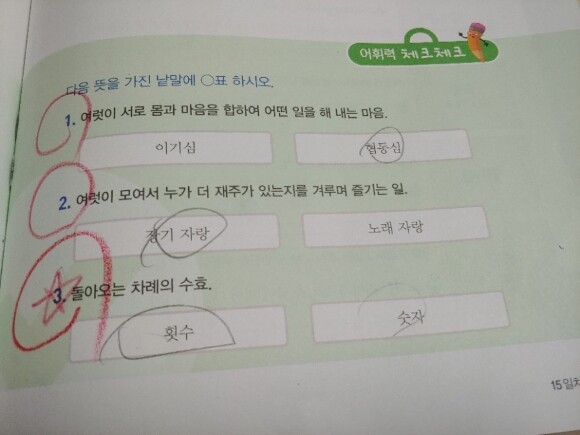 어휘력 체크체크
다음 뜻을 가진 낱말에 ○표 하시오.
1. 여럿이 서로 몸과 마음을 합하여 어떤 일을 해 내는 마음.
이기심 협동심
2. 여럿이 모여서 누가 더 재주가 있는지를 겨루며 즐기는 일.
장기 자랑 노래 자랑
3. 돌아오는 차례의 수효.
횟수 숫자
15일차